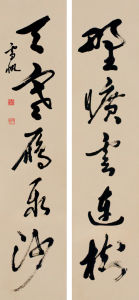 野曠雲連樹
天寒雁聚沙
雪帆